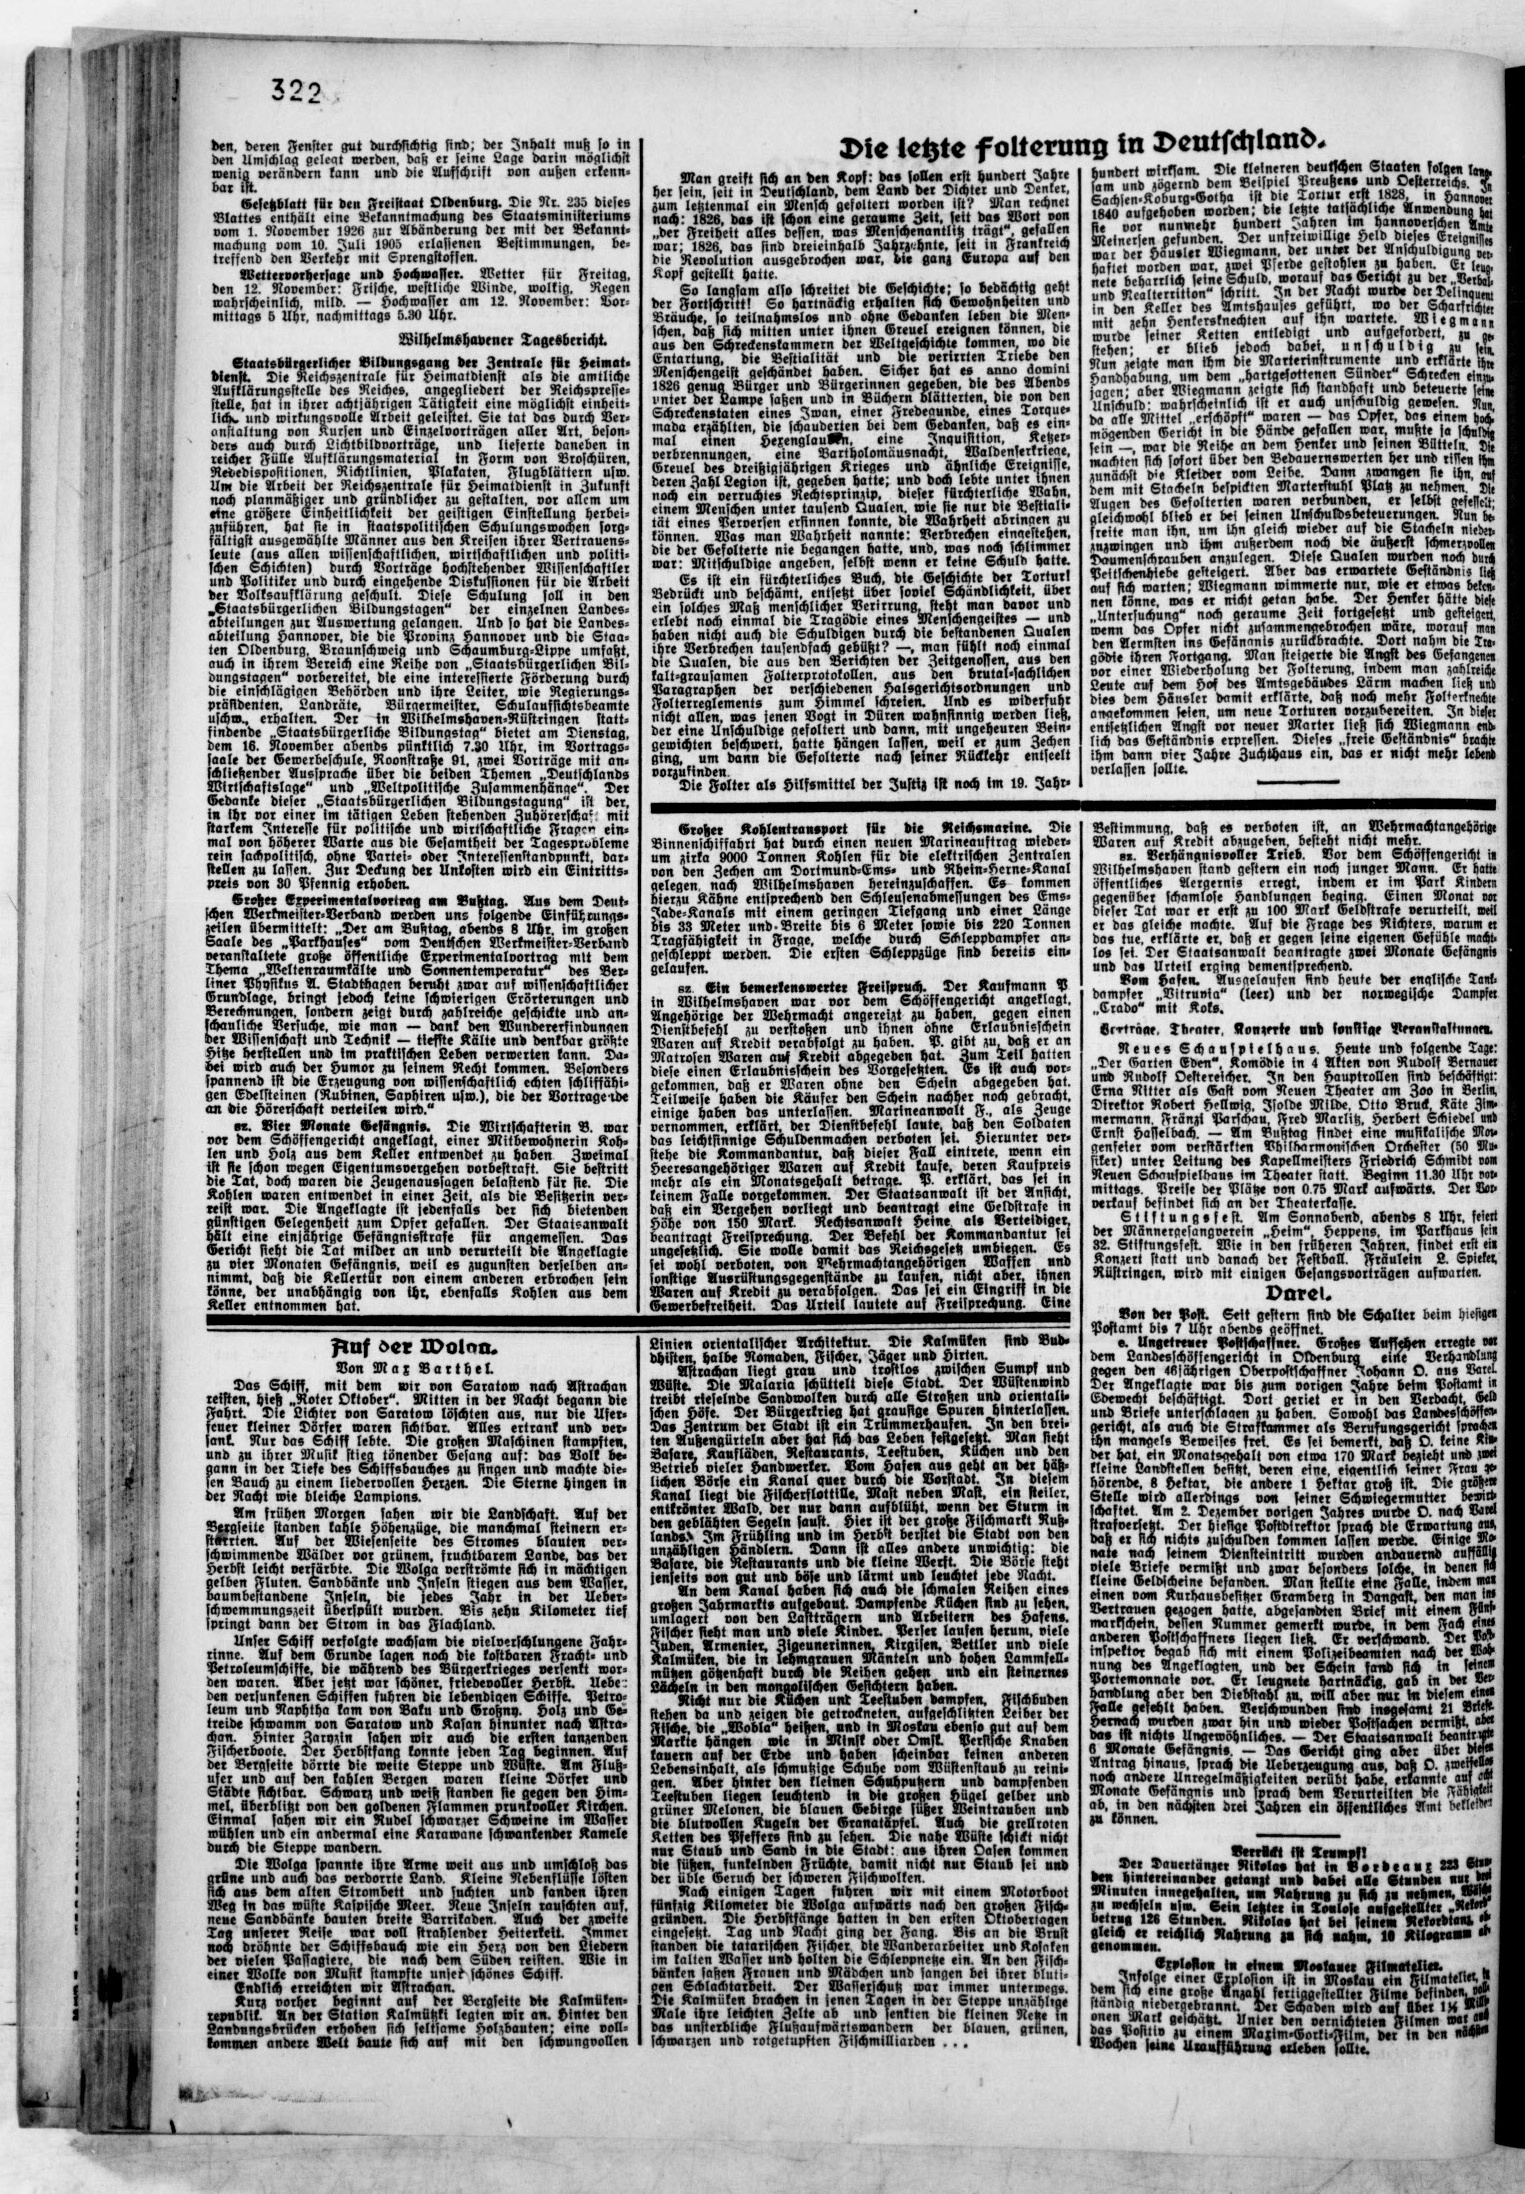 322
den, deren Fenster gut durchsichtig sind; der Inhalt muß so in
den Umschlag gelegt werden, daß er seine Lage darin möglichst
wenig verändern kann und die Aufschrift von außen erkenn-
bar ist.
Gesetzblatt für den Freistaat Oldenburg. Die Nr. 235 dieses
Blattes enthält eine Bekanntmachung des Staatsministeriums
vom 1. November 1926 zur Abänderung der mit der Bekannt-
machung vom 10. Juli 1905 erlassenen Bestimmungen, be-
treffend den Verkehr mit Sprengstoffen.
Wettervorhersage und Hochwasser. Wetter für Freitag,
den 12. November: Frische, westliche Winde, wolkig, Regen
wahrscheinlich, mild. — Hochwasser am 12. November: Vor-
mittags 5 Uhr, nachmittags 5.30 Uhr.
Wilhelmshavener Tagesbericht.
Staatsbürgerlicher Bildungsgang der Zentrale für Heimat-
dienst. Die Reichszentrale für Heimatdienst als die amtliche
Aufklärungsstelle des Reiches, angegliedert der Reichspresse-
stelle, hat in ihrer achtjährigen Tätigkeit eine möglichst einheit-
liche und wirkungsvolle Arbeit geleistet. Sie tat das durch Ver-
anstaltung von Kursen und Einzelvorträgen aller Art, beson-
ders auch durch Lichtbildvorträge, und lieferte daneben in
reicher Fülle Aufklärungsmaterial in Form von Broschüren,
Rededispositionen, Richtlinien, Plakaten, Flugblättern usw.
Um die Arbeit der Reichszentrale für Heimatdienst in Zukunft
noch planmäßiger und gründlicher zu gestalten, vor allem um
eine größere Einheitlichkeit der geistigen Einstellung herbei-
zuführen, hat sie in staatspolitischen Schulungswochen sorg-
fältigst ausgewählte Männer aus den Kreisen ihrer Vertrauens-
leute (aus allen wissenschaftlichen, wirtschaftlichen und politi-
schen Schichten) durch Vorträge hochstehender Wissenschaftler
und Politiker und durch eingehende Diskussionen für die Arbeit
der Volksaufklärung geschult. Diese Schulung soll in den
„Staatsbürgerlichen Bildungstagen“ der einzelnen Landes-
abteilungen zur Auswertung gelangen. Und so hat die Landes-
abteilung Hannover, die die Provinz Hannover und die Staa-
ten Oldenburg, Braunschweig und Schaumburg-Lippe umfaßt,
auch in ihrem Bereich eine Reihe von „Staatsbürgerlichen Bil-
dungstagen“ vorbereitet, die eine interessierte Förderung durch
die einschlägigen Behörden und ihre Leiter, wie Regierungs-
präsidenten, Landräte, Bürgermeister, Schulaufsichtsbeamte
uschw., erhalten. Der in Wilhelmshaven-Rüstringen statt-
findende „Staatsbürgerliche Bildungstag“ bietet am Dienstag,
dem 16. November abends pünktlich 7.30 Uhr, im Vortrags-
saale der Gewerbeschule, Roonstraße 91, zwei Vorträge mit an-
schließender Aussprache über die beiden Themen „Deutschlands
Wirtschaftslage“ und „Weltpolitische Zusammenhänge“. Der
Gedanke dieser „Staatsbürgerlichen Bildungstagung“ ist der,
in ihr vor einer im tätigen Leben stehenden Zuhörerschaft mit
starkem Interesse für politische und wirtschaftliche Fragen ein-
mal von höherer Warte aus die Gesamtheit der Tagesprobleme
rein sachpolitisch, ohne Partei- oder Interessenstandpunkt, dar-
stellen zu lassen. Zur Deckung der Unkosten wird ein Eintritts-
preis von 30 Pfennig erhoben.
Großer Experimentalvortrag am Bußtag. Aus dem Deut-
schen Werkmeister-Verband werden uns folgende Einführungs-
zeilen übermittelt: „Der am Bußtag, abends 8 Uhr, im großen
Saale des „Parkhauses“ vom Deutschen Werkmeister-Verband
veranstaltete große öffentliche Experimentalvortrag mit dem
Thema „Weltenraumkälte und Sonnentemperatur“ des Ber-
liner Physikus A. Stadthagen beruht zwar auf wissenschaftlicher
Grundlage, bringt jedoch keine schwierigen Erörterungen und
Berechnungen, sondern zeigt durch zahlreiche geschickte und an-
schauliche Versuche, wie man — dank den Wundererfindungen
der Wissenschaft und Technik — tiefste Kälte und denkbar größte
Hitze herstellen und im praktischen Leben verwerten kann. Da-
bei wird auch der Humor zu seinem Recht kommen. Besonders
spannend ist die Erzeugung von wissenschaftlich echten schliffähi-
gen Edelsteinen (Rubinen, Saphiren usw.), die der Vortragende
an die Hörerschaft verteilen wird.“
sz. Vier Monate Gefängnis. Die Wirtschafterin B. war
vor dem Schöffengericht angeklagt, einer Mitbewohnerin Koh-
len und Holz aus dem Keller entwendet zu haben. Zweimal
ist sie schon wegen Eigentumsvergehen vorbestraft. Sie bestritt
die Tat, doch waren die Zeugenaussagen belastend für sie. Die
Kohlen waren entwendet in einer Zeit, als die Besitzerin ver-
reist war. Die Angeklagte ist jedenfalls der sich bietenden
günstigen Gelegenheit zum Opfer gefallen. Der Staatsanwalt
hält eine einjährige Gefängnisstrafe für angemessen. Das
Gericht sieht die Tat milder an und verurteilt die Angeklagte
zu vier Monaten Gefängnis, weil es zugunsten derselben an-
nimmt, daß die Kellertür von einem anderen erbrochen sein
könne, der unabhängig von ihr, ebenfalls Kohlen aus dem
Keller entnommen hat.
Die letzte Folterung in Deutschland.
Man greift sich an den Kopf: das sollen erst hundert Jahre
her sein, seit in Deutschland, dem Land der Dichter und Denker,
zum letztenmal ein Mensch gefoltert worden ist? Man rechnet
nach: 1826, das ist schon eine geraume Zeit, seit das Wort von
„der Freiheit alles dessen, was Menschenantlitz trägt“, gefallen
war; 1826, das sind dreieinhalb Jahrzehnte, seit in Frankreich
die Revolution ausgebrochen war, die ganz Europa auf den
Kopf gestellt hatte.
So langsam also schreitet die Geschichte; so bedächtig geht
der Fortschritt! So hartnäckig erhalten sich Gewohnheiten und
Bräuche, so teilnahmslos und ohne Gedanken leben die Men-
schen, daß sich mitten unter ihnen Greuel ereignen können, die
aus den Schreckenskammern der Weltgeschichte kommen, wo die
Entartung, die Bestialität und die verirrten Triebe den
Menschengeist geschändet haben. Sicher hat es anno domini
1826 genug Bürger und Bürgerinnen gegeben, die des Abends
unter der Lampe saßen und in Büchern blätterten, die von den
Schreckenstaten eines Iwan, einer Fredegunde, eines Torque-
mada erzählten, die schauderten bei dem Gedanken, daß es ein-
mal einen Hexenglauben, eine Inquisition, Ketzer-
verbrennungen, eine Bartholomäusnacht, Waldenserkriege,
Greuel des dreißigjährigen Krieges und ähnliche Ereignisse,
deren Zahl Legion ist, gegeben hatte; und doch lebte unter ihnen
noch ein verruchtes Rechtsprinzip, dieser fürchterliche Wahn,
einem Menschen unter tausend Qualen, wie sie nur die Bestiali-
tät eines Perversen ersinnen konnte, die Wahrheit abringen zu
können. Was man Wahrheit nannte: Verbrechen eingestehen,
die der Gefolterte nie begangen hatte, und, was noch schlimmer
war: Mitschuldige angeben, selbst wenn er keine Schuld hatte.
Es ist ein fürchterliches Buch, die Geschichte der Tortur!
Bedrückt und beschämt, entsetzt über soviel Schändlichkeit, über
ein solches Maß menschlicher Verirrung, steht man davor und
erlebt noch einmal die Tragödie eines Menschengeistes — und
haben nicht auch die Schuldigen durch die bestandenen Qualen
ihre Verbrechen tausendfach gebüßt? —, man fühlt noch einmal
die Qualen, die aus den Berichten der Zeitgenossen, aus den
kalt-grausamen Folterprotokollen, aus den brutal-sachlichen
Paragraphen der verschiedenen Halsgerichtsordnungen und
Folterreglements zum Himmel schreien. Und es widerfuhr
nicht allen, was jenen Vogt in Düren wahnsinnig werden ließ,
der eine Unschuldige gefoltert und dann, mit ungeheuren Bein-
gewichten beschwert, hatte hängen lassen, weil er zum Zechen
ging, um dann die Gefolterte nach seiner Rückkehr entseelt
vorzufinden.
Die Folter als Hilfsmittel der Justiz ist noch im 19. Jahr-
hundert wirksam. Die kleineren deutschen Staaten folgen lang-
sam und zögernd dem Beispiel Preußens und Oesterreichs. In
Sachsen-Koburg-Gotha ist die Tortur erst 1828, in Hannover
1840 aufgehoben worden; die letzte tatsächliche Anwendung hat
sie vor nunmehr hundert Jahren im hannoverschen Amte
Meinersen gefunden. Der unfreiwillige Held dieses Ereignisses
war der Häusler Wiegmann, der unter der Anschuldigung ver-
haftet worden war, zwei Pferde gestohlen zu haben. Er leug-
nete beharrlich seine Schuld, worauf das Gericht zu der „Verbal-
und Realterrition“ schritt. In der Nacht wurde der Delinquent
in den Keller des Amtshauses geführt, wo der Scharfrichter
mit zehn Henkersknechten auf ihn wartete. Wiegmann
wurde seiner Ketten entledigt und aufgefordert, zu ge-
stehen; er blieb jedoch dabei, unschuldig zu sein.
Nun zeigte man ihm die Marterinstrumente und erklärte ihre
Handhabung, um dem „hartgesottenen Sünder“ Schrecken einzu-
jagen; aber Wiegmann zeigte sich standhaft und beteuerte seine
Unschuld; wahrscheinlich ist er auch unschuldig gewesen. Nun,
da alle Mittel „erschöpft“ waren — das Opfer, das einem hoch-
mögenden Gericht in die Hände gefallen war, mußte ja schuldig
sein —, war die Reihe an dem Henker und seinen Bütteln. Die
machten sich sofort über den Bedauernswerten her und rissen ihm
zunächst die Kleider vom Leibe. Dann zwangen sie ihn, auf
dem mit Stacheln bespickten Marterstuhl Platz zu nehmen. Die
Augen des Gefolterten waren verbunden, er selbst gefesselt;
gleichwohl blieb er bei seinen Unschuldsbeteuerungen. Nun be-
freite man ihn, um ihn gleich wieder auf die Stacheln nieder-
zuzwingen und ihm außerdem noch die äußerst schmerzvollen
Daumenschrauben anzulegen. Diese Qualen wurden noch durch
Peitschenhiebe gesteigert. Aber das erwartete Geständnis ließ
auf sich warten; Wiegmann wimmerte nur, wie er etwas beken-
nen könne, was er nicht getan habe. Der Henker hätte diese
„Untersuchung“ noch geraume Zeit fortgesetzt und gesteigert,
wenn das Opfer nicht zusammengebrochen wäre, worauf man
den Aermsten ins Gefängnis zurückbrachte. Dort nahm die Tra-
gödie ihren Fortgang. Man steigerte die Angst des Gefangenen
vor einer Wiederholung der Folterung, indem man zahlreiche
Leute auf dem Hof des Amtsgebäudes Lärm machen ließ und
dies dem Häusler damit erklärte, daß noch mehr Folterknechte
angekommen seien, um neue Torturen vorzubereiten. In dieser
entsetzlichen Angst vor neuer Marter ließ sich Wiegmann end-
lich das Geständnis erpressen. Dieses „freie Geständnis“ brachte
ihm dann vier Jahre Zuchthaus ein, das er nicht mehr lebend
verlassen sollte.
Großer Kohlentransport für die Reichsmarine. Die
Binnenschiffahrt hat durch einen neuen Marineauftrag wieder-
um zirka 9000 Tonnen Kohlen für die elektrischen Zentralen
von den Zechen am Dortmund-Ems- und Rhein-Herne-Kanal
gelegen, nach Wilhelmshaven hereinzuschaffen. Es kommen
hierzu Kähne entsprechend den Schleusenabmessungen des Ems-
Jade-Kanals mit einem geringen Tiefgang und einer Länge
bis 33 Meter und Breite bis 6 Meter sowie bis 220 Tonnen
Tragfähigkeit in Frage, welche durch Schleppdampfer an-
geschleppt werden. Die ersten Schleppzüge sind bereits ein-
gelaufen.
sz. Ein bemerkenswerter Freispruch. Der Kaufmann P
in Wilhelmshaven war vor dem Schöffengericht angeklagt,
Angehörige der Wehrmacht angereizt zu haben, gegen einen
Dienstbefehl zu verstoßen und ihnen ohne Erlaubnisschein
Waren auf Kredit verabfolgt zu haben. P. gibt zu, daß er an
Matrosen Waren auf Kredit abgegeben hat. Zum Teil hatten
diese einen Erlaubnisschein des Vorgesetzten. Es ist auch vor-
gekommen, daß er Waren ohne den Schein abgegeben hat.
Teilweise haben die Käufer den Schein nachher noch gebracht,
einige haben das unterlassen. Marineanwalt F., als Zeuge
vernommen, erklärt, der Dienstbefehl laute, daß den Soldaten
das leichtsinnige Schuldenmachen verboten sei. Hierunter ver-
stehe die Kommandantur, daß dieser Fall eintrete, wenn ein
Heeresangehöriger Waren auf Kredit kaufe, deren Kaufpreis
mehr als ein Monatsgehalt betrage. P. erklärt, das sei in
keinem Falle vorgekommen. Der Staatsanwalt ist der Ansicht,
daß ein Vergehen vorliegt und beantragt eine Geldstrafe in
Höhe von 150 Mark. Rechtsanwalt Heine, als Verteidiger,
beantragt Freisprechung. Der Befehl der Kommandantur sei
ungesetzlich. Sie wolle damit das Reichsgesetz umbiegen. Es
sei wohl verboten, von Wehrmachtangehörigen Waffen und
sonstige Ausrüstungsgegenstände zu kaufen, nicht aber, ihnen
Waren auf Kredit zu verabfolgen. Das sei ein Eingriff in die
Gewerbefreiheit. Das Urteil lautete auf Freisprechung. Eine
Bestimmung, daß es verboten ist, an Wehrmachtangehörige
Waren auf Kredit abzugeben, besteht nicht mehr.
sz. Verhängnisvoller Trieb. Vor dem Schöffengericht in
Wilhelmshaven stand gestern ein noch junger Mann. Er hatte
öffentliches Aergernis erregt, indem er im Park Kindern
gegenüber schamlose Handlungen beging. Einen Monat vor
dieser Tat war er erst zu 100 Mark Geldstrafe verurteilt, weil
er das gleiche machte. Auf die Frage des Richters, warum er
das tue, erklärte er, daß er gegen seine eigenen Gefühle macht-
los sei. Der Staatsanwalt beantragte zwei Monate Gefängnis
und das Urteil erging dementsprechend.
Vom Hafen. Ausgelaufen sind heute der englische Tank-
dampfer „Vitruvia“ (leer) und der norwegische Dampfer
„Crado“ mit Koks.
Vorträge, Theater, Konzerte und sonstige Veranstaltungen.
Neues Schauspielhaus. Heute und folgende Tage:
„Der Garten Eden“, Komödie in 4 Akten von Rudolf Bernauer
und Rudolf Oestereicher. In den Hauptrollen sind beschäftigt:
Erna Ritter als Gast vom Neuen Theater am Zoo in Berlin,
Direktor Robert Hellwig, Isolde Milde, Otto Bruck, Käte Zim-
mermann, Fränzl Parschau, Fred Marlitz, Herbert Schiedel und
Ernst Hasselbach. — Am Bußtag findet eine musikalische Mor-
genfeier vom verstärkten Philharmonischen Orchester (50 Mu-
siker) unter Leitung des Kapellmeisters Friedrich Schmidt vom
Neuen Schauspielhaus im Theater statt. Beginn 11.30 Uhr vor-
mittags. Preise der Plätze von 0.75 Mark aufwärts. Der Vor-
verkauf befindet sich an der Theaterkasse.
Stiftungsfest. Am Sonnabend, abends 8 Uhr, feiert
der Männergesangverein „Heim“, Heppens, im Parkhaus sein
32. Stiftungsfest. Wie in den früheren Jahren, findet erst ein
Konzert statt und danach der Festball. Fräulein L. Spieker,
Rüstringen, wird mit einigen Gesangsvorträgen aufwarten.
Varel.
Von der Post. Seit gestern sind die Schalter beim hiesigen
Postamt bis 7 Uhr abends geöffnet.
e. Ungetreuer Postschaffner. Großes Aufsehen erregte vor
dem Landesschöffengericht in Oldenburg eine Verhandlung
gegen den 46jährigen Oberpostschaffner Johann O. aus Varel.
Der Angeklagte war bis zum vorigen Jahre beim Postamt in
Edewecht beschäftigt. Dort geriet er in den Verdacht, Geld
und Briefe unterschlagen zu haben. Sowohl das Landesschöffen-
gericht, als auch die Strafkammer als Berufungsgericht sprachen
ihn mangels Beweises frei. Es sei bemerkt, daß O. keine Kin-
der hat, ein Monatsgehalt von etwa 170 Mark bezieht und zwei
kleine Landstellen besitzt, deren eine, eigentlich seiner Frau ge-
hörende, 8 Hektar, die andere 1 Hektar groß ist. Die größere
Stelle wird allerdings von seiner Schwiegermutter bewirt-
schaftet. Am 2. Dezember vorigen Jahres wurde O. nach Varel
strafversetzt. Der hiesige Postdirektor sprach die Erwartung aus,
daß er sich nichts zuschulden kommen lassen werde. Einige Mo-
nate nach seinem Diensteintritt wurden andauernd auffällig
viele Briefe vermißt und zwar besonders solche, in denen sich
kleine Geldscheine befanden. Man stellte eine Falle, indem man
einen vom Kurhausbesitzer Gramberg in Dangast, den man ins
Vertrauen gezogen hatte, abgesandten Brief mit einem Fünf-
markschein, dessen Nummer gemerkt wurde, in dem Fach eines
anderen Postschaffners liegen ließ. Er verschwand. Der Post-
inspektor begab sich mit einem Polizeibeamten nach der Woh-
nung des Angeklagten, und der Schein fand sich in seinem
Portemonnaie vor. Er leugnete hartnäckig, gab in der Ver-
handlung aber den Diebstahl zu, will aber nur in diesem einen
Falle gefehlt haben. Verschwunden sind insgesamt 21 Briefe.
Hernach wurden zwar hin und wieder Postsachen vermißt, aber
das ist nichts Ungewöhnliches. — Der Staatsanwalt beantragte
6 Monate Gefängnis. — Das Gericht ging aber über diesen
Antrag hinaus, sprach die Ueberzeugung aus, daß O. zweifellos
noch andere Unregelmäßigkeiten verübt habe, erkannte auf acht
Monate Gefängnis und sprach dem Verurteilten die Fähigkeit
ab, in den nächsten drei Jahren ein öffentliches Amt bekleiden
zu können.
Verrückt ist Trumpf!
Der Dauertänzer Nikolas hat in Bordeaux 223 Stun-
den hintereinander getanzt und dabei alle Stunden nur drei
Minuten innegehalten, um Nahrung zu sich zu nehmen, Wäsche
zu wechseln usw. Sein letzter in Toulose aufgestellter „Rekord“
betrug 126 Stunden. Nikolas hat bei seinem Rekordtanz, ob-
gleich er reichlich Nahrung zu sich nahm, 10 Kilogramm ab-
genommen.
Explosion in einem Moskauer Filmatelier.
Infolge einer Explosion ist in Moskau ein Filmatelier, in
dem sich eine große Anzahl fertiggestellter Filme befinden, voll-
ständig niedergebrannt. Der Schaden wird auf über 1½ Milli-
onen Mark geschätzt. Unter den vernichteten Filmen war auch
das Positiv zu einem Maxim-Gorki-Film, der in den nächsten
Wochen seine Uraufführung erleben sollte.
Auf der Wolga.
Von Max Barthel.
Das Schiff, mit dem wir von Saratow nach Astrachan
reisten, hieß „Roter Oktober“. Mitten in der Nacht begann die
Fahrt. Die Lichter von Saratow löschten aus, nur die Ufer-
feuer kleiner Dörfer waren sichtbar. Alles ertrank und ver-
sank. Nur das Schiff lebte. Die großen Maschinen stampften,
und zu ihrer Musik stieg tönender Gesang auf: das Volk be-
gann in der Tiefe des Schiffsbauches zu singen und machte die-
sen Bauch zu einem liedervollen Herzen. Die Sterne hingen in
der Nacht wie bleiche Lampions.
Am frühen Morgen sahen wir die Landschaft. Auf der
Bergseite standen kahle Höhenzüge, die manchmal steinern er-
starrten. Auf der Wiesenseite des Stromes blauten ver-
schwimmende Wälder vor grünem, fruchtbarem Lande, das der
Herbst leicht verfärbte. Die Wolga verströmte sich in mächtigen
gelben Fluten. Sandbänke und Inseln stiegen aus dem Wasser,
baumbestandene Inseln, die jedes Jahr in der Ueber-
schwemmungszeit überspült wurden. Bis zehn Kilometer tief
springt dann der Strom in das Flachland.
Unser Schiff verfolgte wachsam die vielverschlungene Fahr-
rinne. Auf dem Grunde lagen noch die kostbaren Fracht- und
Petroleumschiffe, die während des Bürgerkrieges versenkt wor-
den waren. Aber jetzt war schöner, friedevoller Herbst. Ueber
den versunkenen Schiffen fuhren die lebendigen Schiffe. Petro-
leum und Naphtha kam von Baku und Grosny. Holz und Ge-
treide schwamm von Saratow und Kasan hinunter nach Astra-
chan. Hinter Zaryzin sahen wir auch die ersten tanzenden
Fischerboote. Der Herbstfang konnte jeden Tag beginnen. Auf
der Bergseite dörrte die weite Steppe und Wüste. Am Fluß-
ufer und auf den kahlen Bergen waren kleine Dörfer und
Städte sichtbar. Schwarz und weiß standen sie gegen den Him-
mel, überblitzt von den goldenen Flammen prunkvoller Kirchen.
Einmal sahen wir ein Rudel schwarzer Schweine im Wasser
wühlen und ein andermal eine Karawane schwankender Kamele
durch die Steppe wandern.
Die Wolga spannte ihre Arme weit aus und umschloß das
grüne und auch das verdorrte Land. Kleine Nebenflüsse lösten
sich aus dem alten Strombett und suchten und fanden ihren
Weg in das wüste Kaspische Meer. Neue Inseln rauschten auf,
neue Sandbänke bauten breite Barrikaden. Auch der zweite
Tag unserer Reise war voll strahlender Heiterkeit. Immer
noch dröhnte der Schiffsbauch wie ein Herz von den Liedern
der vielen Passagiere, die nach dem Süden reisten. Wie in
einer Wolke von Musik stampfte unser schönes Schiff.
Endlich erreichten wir Astrachan.
Kurz vorher beginnt auf der Bergseite die Kalmüken-
republik. An der Station Kalmützki legten wir an. Hinter den
Landungsbrücken erhoben sich seltsame Holzbauten; eine voll-
kommen andere Welt baute sich auf mit den schwungvollen
Linien orientalischer Architektur. Die Kalmüken sind Bud-
dhisten, halbe Nomaden, Fischer, Jäger und Hirten.
Astrachan liegt grau und trostlos zwischen Sumpf und
Wüste. Die Malaria schüttelt diese Stadt. Der Wüstenwind
treibt rieselnde Sandwolken durch alle Straßen und orientali-
schen Höfe. Der Bürgerkrieg hat grausige Spuren hinterlassen.
Das Zentrum der Stadt ist ein Trümmerhaufen. In den brei-
ten Außengürteln aber hat sich das Leben festgesetzt. Man sieht
Basare, Kaufläden, Restaurants, Teestuben, Küchen und den
Betrieb vieler Handwerker. Vom Hafen aus geht an der häß-
lichen Börse ein Kanal quer durch die Vorstadt. In diesem
Kanal liegt die Fischerflottille, Mast neben Mast, ein steiler,
entkrönter Wald, der nur dann aufblüht, wenn der Sturm in
den geblähten Segeln saust. Hier ist der große Fischmarkt Ruß-
lands. Im Frühling und im Herbst berstet die Stadt von den
unzähligen Händlern. Dann ist alles andere unwichtig: die
Basare, die Restaurants und die kleine Werft. Die Börse steht
jenseits von gut und böse und lärmt und leuchtet jede Nacht.
An dem Kanal haben sich auch die schmalen Reihen eines
großen Jahrmarkts aufgebaut. Dampfende Küchen sind zu sehen,
umlagert von den Lastträgern und Arbeitern des Hafens.
Fischer sieht man und viele Kinder. Perser laufen herum, viele
Juden, Armenier, Zigeunerinnen, Kirgisen, Bettler und viele
Kalmüken, die in lehmgrauen Mänteln und hohen Lammfell-
mützen götzenhaft durch die Reihen gehen und ein steinernes
Lächeln in den mongolischen Gesichtern haben.
Nicht nur die Küchen und Teestuben dampfen, Fischbuden
stehen da und zeigen die getrockneten, aufgeschlitzten Leiber der
Fische, die „Wobla“ heißen, und in Moskau ebenso gut auf dem
Markte hängen wie in Minsk oder Omsk. Persische Knaben
kauern auf der Erde und haben scheinbar keinen anderen
Lebensinhalt, als schmutzige Schuhe vom Wüstenstaub zu reini-
gen. Aber hinter den kleinen Schuhputzern und dampfenden
Teestuben liegen leuchtend in die großen Hügel gelber und
grüner Melonen, die blauen Gebirge süßer Weintrauben und
die blutvollen Kugeln der Granatäpfel. Auch die grellroten
Ketten des Pfeffers sind zu sehen. Die nahe Wüste schickt nicht
nur Staub und Sand in die Stadt: aus ihren Oasen kommen
die süßen, funkelnden Früchte, damit nicht nur Staub sei und
der üble Geruch der schweren Fischwolken.
Nach einigen Tagen fuhren wir mit einem Motorboot
fünfzig Kilometer die Wolga aufwärts nach den großen Fisch-
gründen. Die Herbstfänge hatten in den ersten Oktobertagen
eingesetzt. Tag und Nacht ging der Fang. Bis an die Brust
standen die tatarischen Fischer, die Wanderarbeiter und Kosaken
im kalten Wasser und holten die Schleppnetze ein. An den Fisch-
bänken saßen Frauen und Mädchen und sangen bei ihrer bluti-
gen Schlachtarbeit. Der Wasserschutz war immer unterwegs.
Die Kalmüken brachen in jenen Tagen in der Steppe unzählige
Male ihre leichten Zelte ab und senkten die kleinen Netze in
das unsterbliche Flußaufwärtswandern der blauen, grünen,
schwarzen und rotgetupften Fischmilliarden . . .